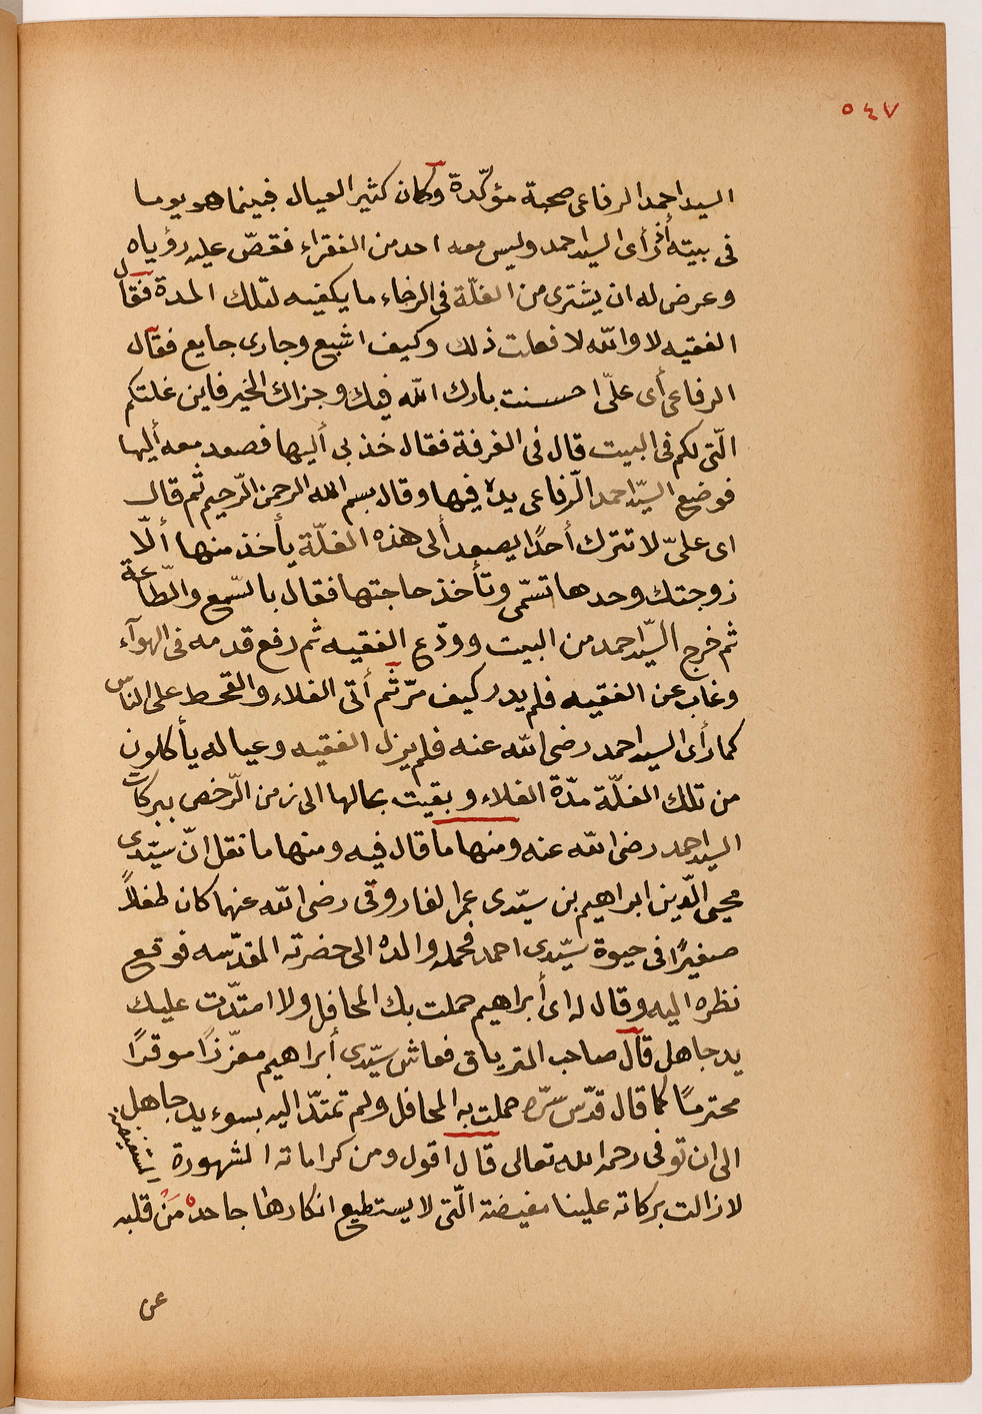 ٥٤٧
السيد احمد الرفاعى صحبة مؤكّدة وكان كثير العيال فبينما هو يوما
فى بيته أذ رأى السيد احمد وليس معه احد من الفقراء فقصّ عليه رؤياه
وعرض له ان يشترى من الغلّة فى الرخاء ما يكفيه لتلك المدة فقال
الفقيه لا والله لا فعلت ذلك وكيف اشبع وجارى جايع فقال
الرفاعى أى علىّ احسنت بارك الله فيك وجزاك الخير فاين غلتكم
الّتى لكم فى البيت قال فى الغرفة فقال خذ بى أليها فصعد معه أليها
فوضع السيّد احمد الرّفاعى يده فيها وقال بسم الله الرحمن الرّحيم ثم قال
اى علىّ لا تترك أحدًا يصعد ألى هذه الغلّة يأخذ منها ألّا
زوجتك وحدها تسمّى وتأخذ حاجتها فقال بالسّمع والطّاعة
ثم خرج السيّد احمد من البيت وودّع الفقيه ثم رفع قدمه فى الهوآء
وغاب عن الفقيه فلم يدر كيف مرّ ثم أتى الغلاء والقحط على الناس
كما رأى السيد احمد رضى الله عنه فلم يزل الفقيه وعياله يأكلون
من تلك الغلّة مدّة الغلاء وبقيت بحالها الى زمن الرّخص ببركات
السيد احمد رضى الله عنه ومنها ما قال فيه ومنها ما نقل انّ سيّدى
محيى الدّين ابراهيم بن سيّدى عمر الفاروقى رضى الله عنهما كان طفلاً
صغيرًا فى حيوة سيّدى احمد فحمله والده الى حضرته المقدّسه فوقع
نظره اليه وقال له اى أبراهيم حملت بك المحافل ولا امتدّت عليك
يد جاهل قال صاحب الترياق فعاش سيّدى أبراهيم معزّزًا موقرًا
محترمًا كما قال قدّس سرّه حملت به المحافل ولم تمتدّ اليه بسوء يد جاهل
الى ان توفى رحمه الله تعالى قال اقول ومن كراماته المشهورة المستفيضة
لا زالت بركاته علينا مفيضة الّتى لا يستطيع انكارها جاحد مَنْ قلبه
عن